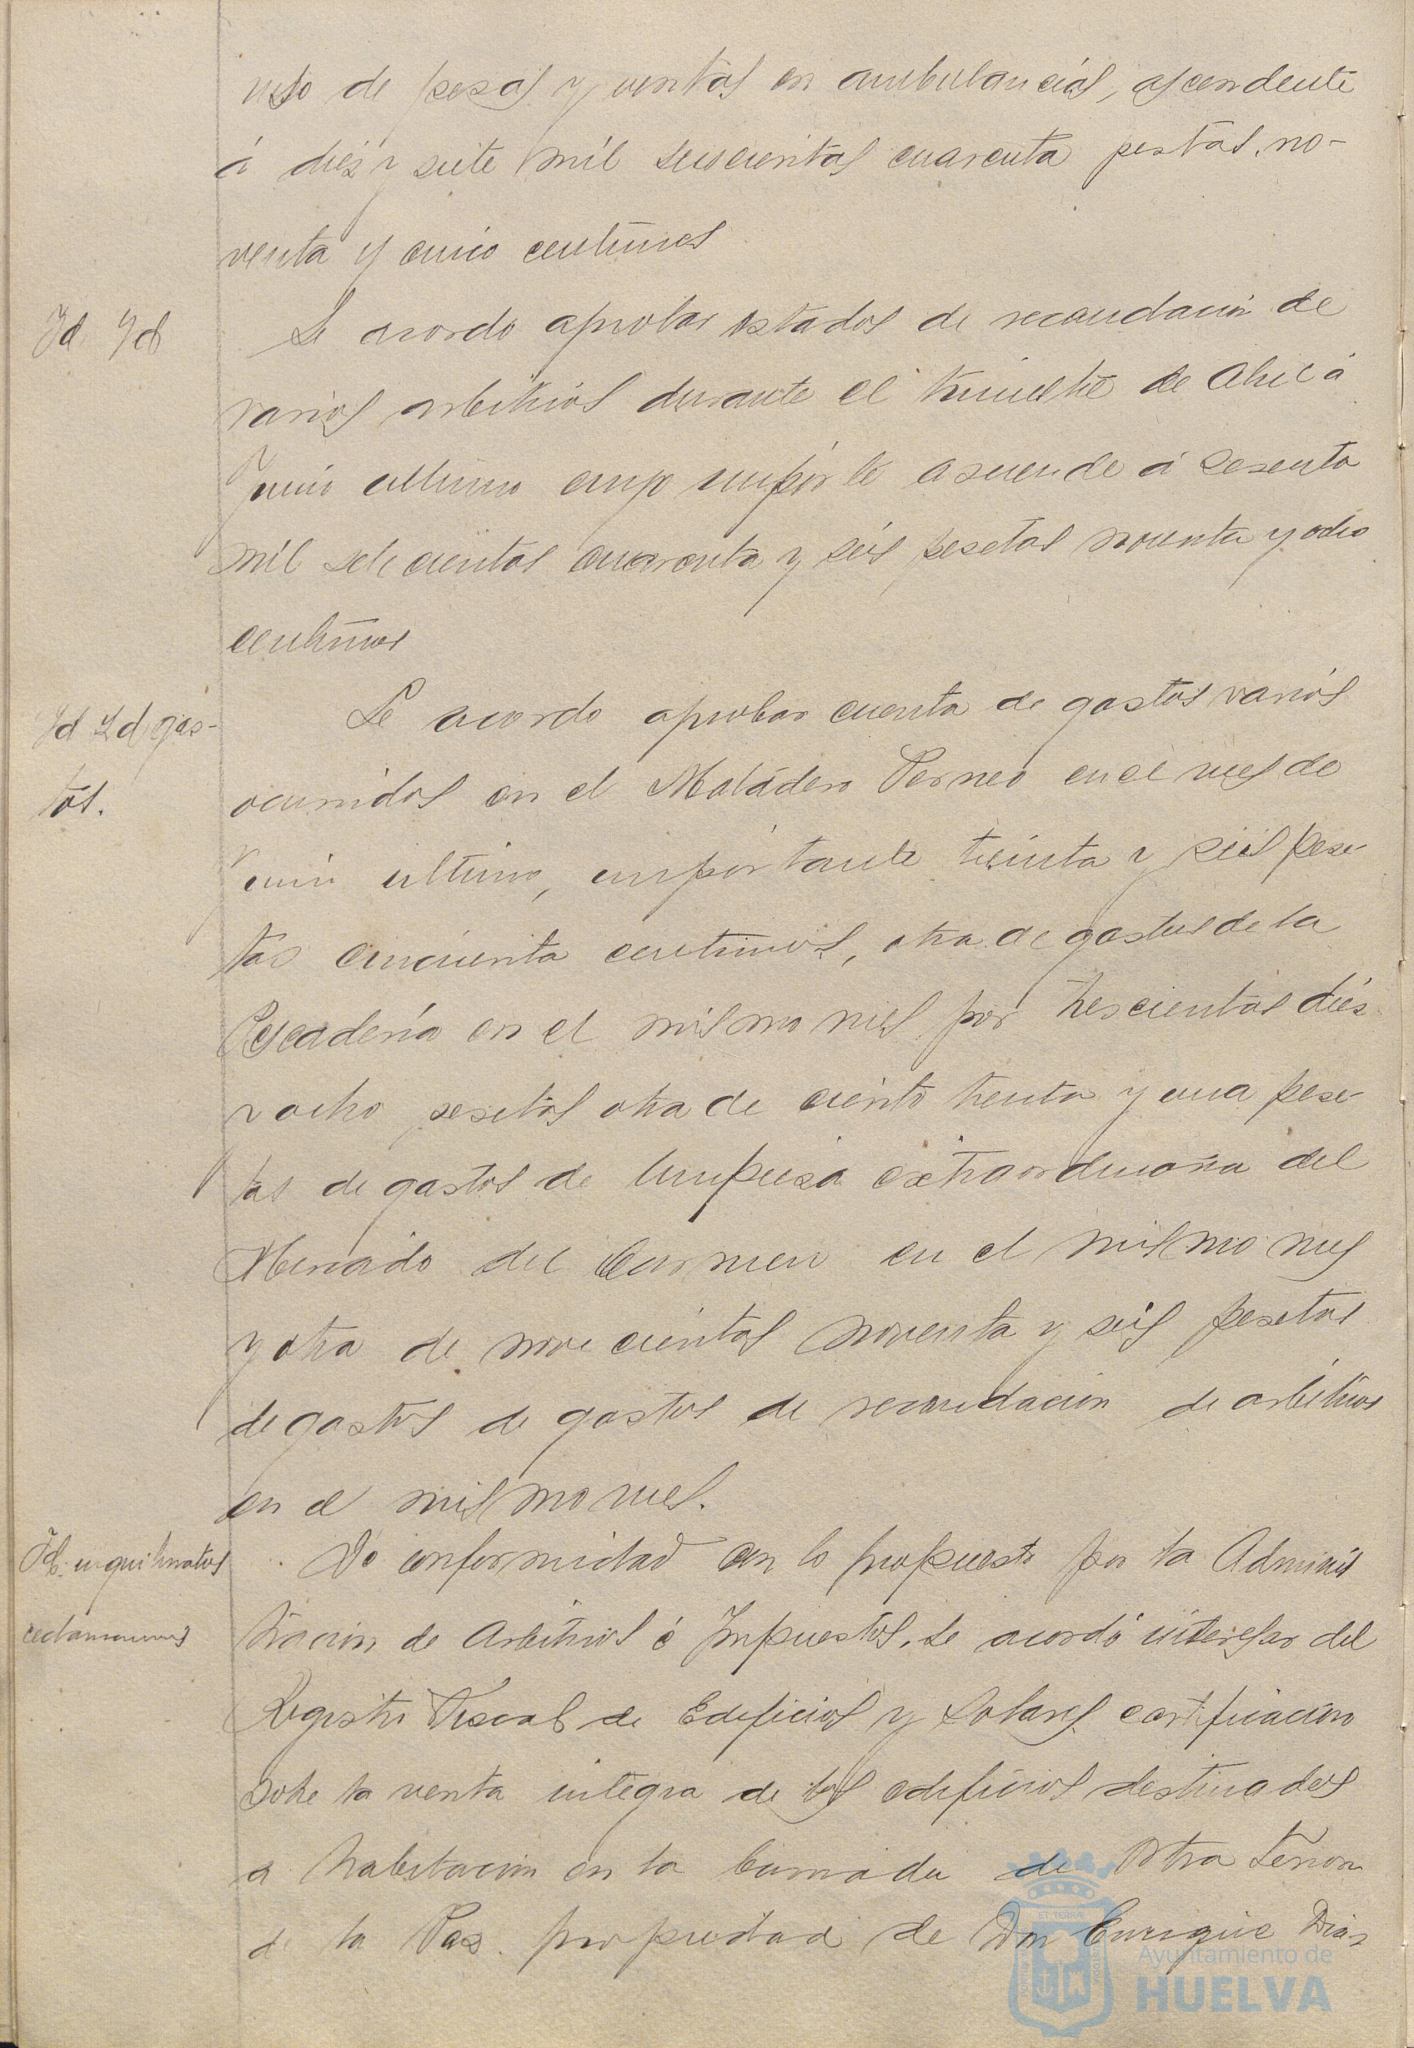 de pesas y ventas en ambulancias, ascendente
á diés y siete mil seiscientas cuarenta pestas, no-
venta y cinco centimos
Id Id
Se acordo aprobar estados de recaudación de
varios arbitrios durante el trimestre de Abril á
Junio ultimo cuyo importe asciende á sesenta
mil setecientas cuarenta y séis pesetas noventa y ocho
centimos
Id Id gas-
tos.
Se acordo aprobar cuenta de gastos varios
ocurridos en el Matadero Perneo en el mes de
Junio ultimo, importante treinta y séis pese-
tas cincuenta centimos, otra de gastos de la
Pescadería en el mismo mes por trescientas diés
y ocho pesetas otra de ciento treinta y una pese-
tas de gastos de limpieza extraordinaria del
Mercado del Carmen en el mismo mes
y otra de novecientas noventa y séis pesetas
de gastos de gastos de recaudación de arbitrios
en el mismo mes.
Id. inquilinatos
reclamaciones
De conformidad con lo propuesto por la Adminis
tración de Arbitrios é Impuestos, se acordó interesar del
Registro Fiscal de Edificios y Solares certificacion
sobre la renta integra de los edificios destinados
a habitacion en la barriada de Ntra Señora
de la Paz. propiedad de Don Enrique Diaz
Ayuntamiento de
HUELVA